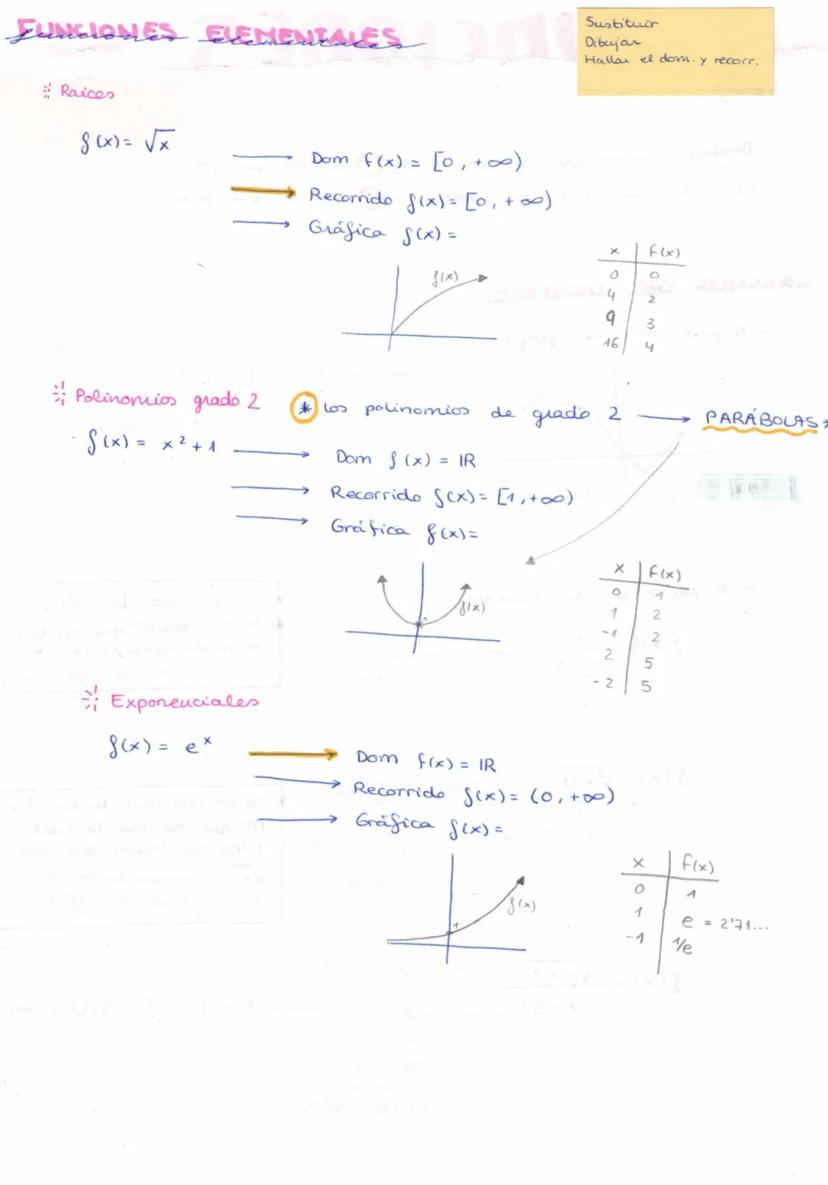 FUNCIONES ELEMENTALES
Sustituir
Dibujar
Hallar el dom. y recorr.
Raices
f(x) = √x
Dom f(x) = [0, +∞)
Recorrido f(x) = [0, +∞)
Gráfica f(x) =
f(x)
x | f(x)
0 | 0
4 | 2
9 | 3
16 | 4
Polinomios grado 2
* Los polinomios de grado 2 → PARÁBOLAS
f(x) = x² + 1
Dom f(x) = IR
Recorrido f(x) = [1, +∞)
Gráfica f(x) =
f(x)
1
x | f(x)
0 | 1
1 | 2
-1 | 2
2 | 5
-2 | 5
Exponenciales
f(x) = eˣ
Dom f(x) = IR
Recorrido f(x) = (0, +∞)
Gráfica f(x) =
f(x)
1
x | f(x)
0 | 1
1 | e = 2'71...
-1 | 1/e